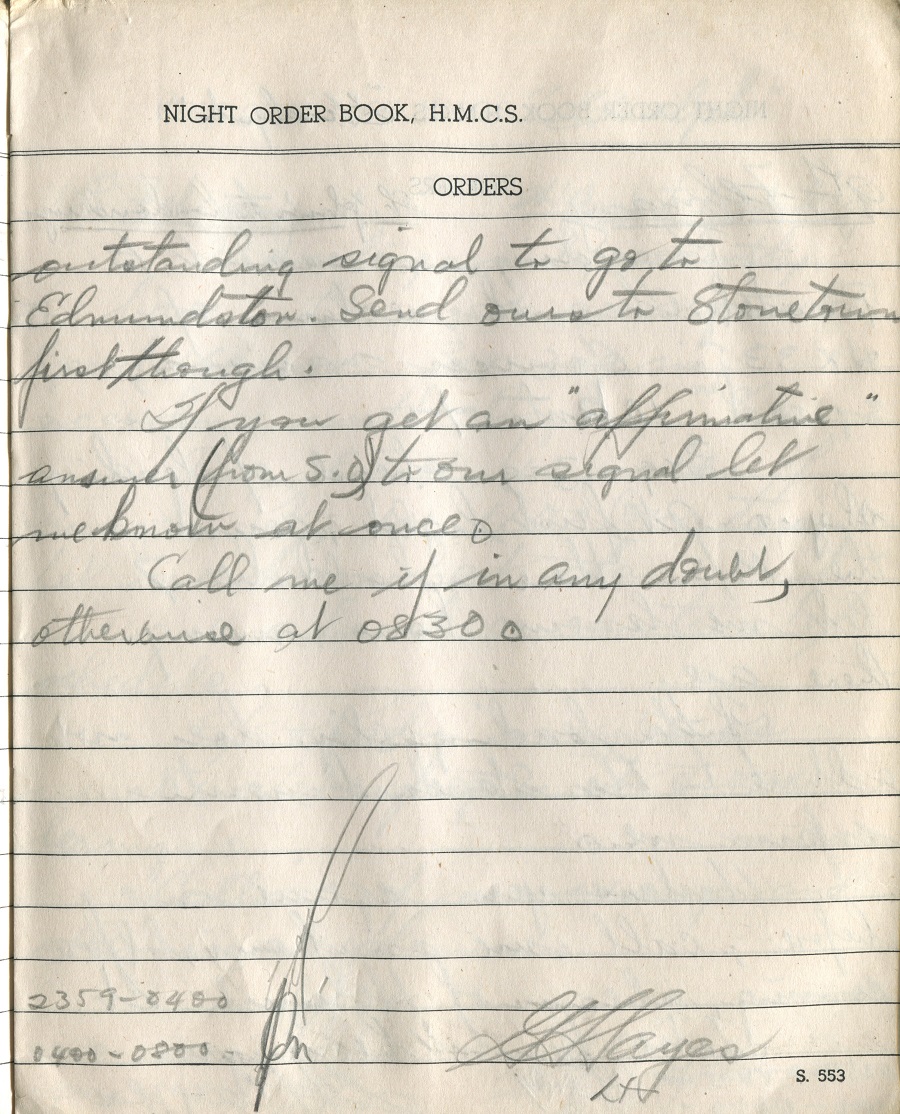 NIGHT ORDER BOOK, H.M.C.S.
ORDERS
outstanding signal to go to
Edmundston. Send ours to Stonetown
first though.
If you get an "affirmative"
answer (from S.O) to our signal let
me know at once.
Call me if in any doubt,
otherwise at 0830.
2359-0400
0400-0800-
Hayes
Lt
S. 553